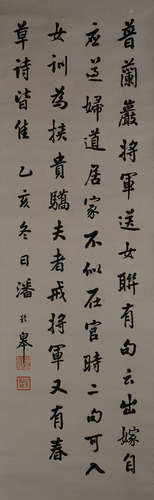 普蘭巖將軍送女聯有句云出嫁自
應遵婦道居家不似在官時二句可入
女訓為挾貴驕夫者戒將軍又有春
草詩皆佳 乙亥冬日潘於皋